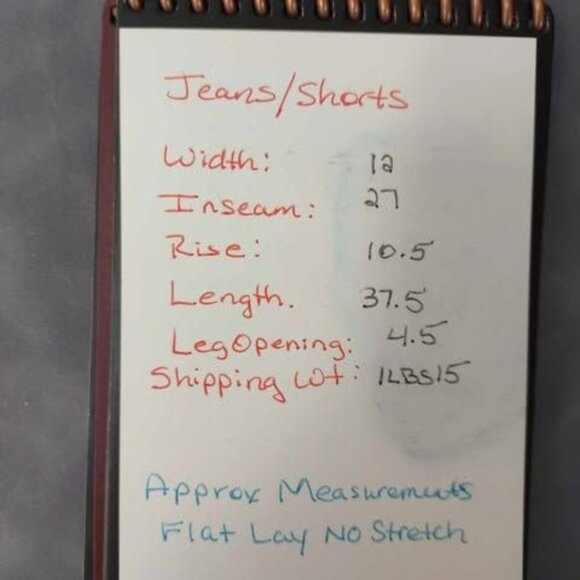 Jeans/Shorts
Width: 12
Inseam: 27
Rise: 10.5
Length. 37.5
Leg Opening: 4.5
Shipping Wt: 1LBS15
Approx Measurements
Flat Lay No Stretch